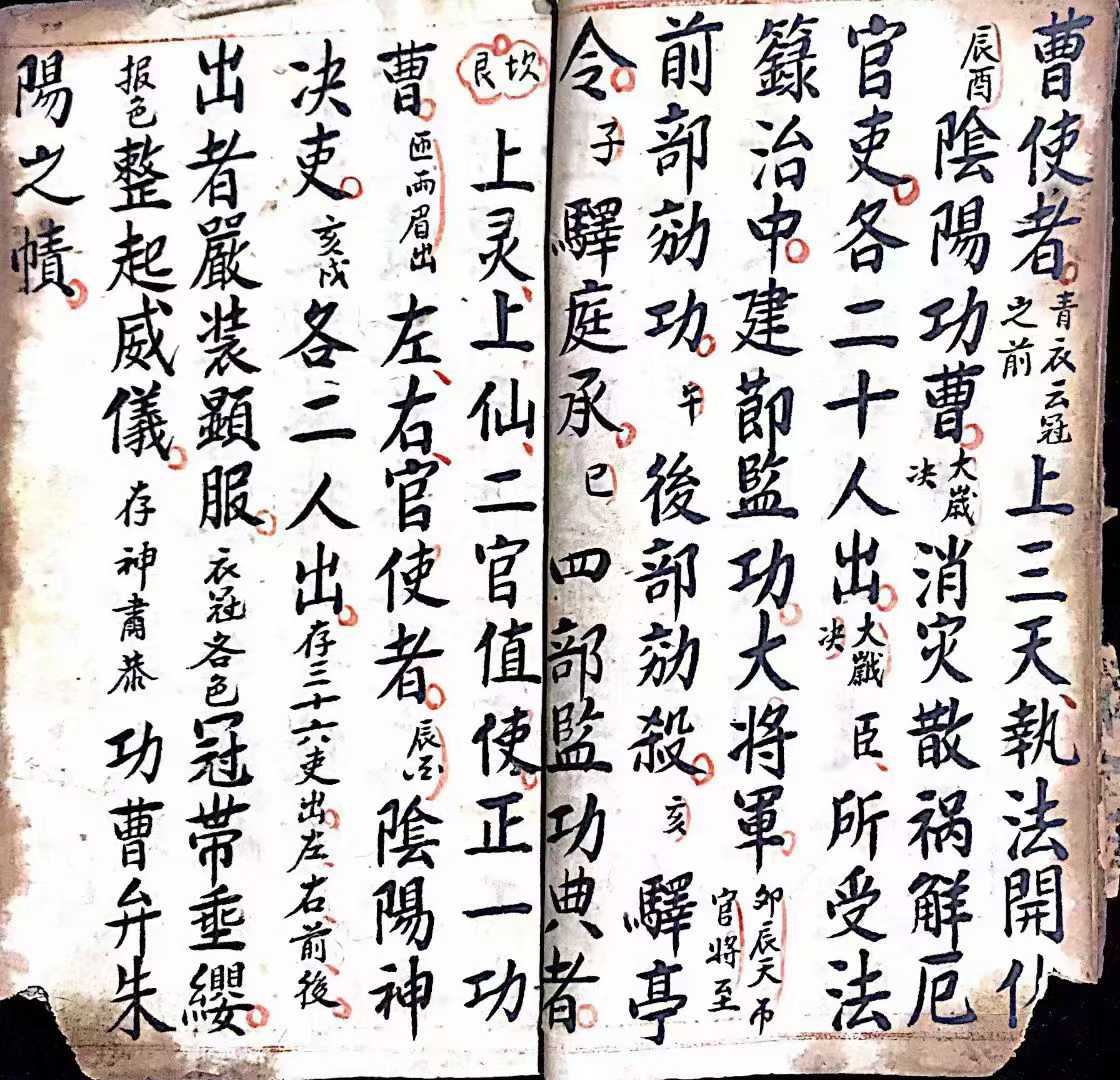 曹使者。青衣云冠之前上三天、執法開化
辰酉陰陽功曹。大歳决消灾散祸解厄
官吏。各二十人出。大歳决臣、所受法
籙治中。建節監功。大将軍。卯辰天帀官將至
前部効功。午後部効殺。亥驛亭
令。子驛庭承。巳四部監功典者。
坎艮上灵、上仙、二官值使。正一功
曹。両眉出左、右、官使者。辰陰陽神
决吏。亥戌各二人出。存三十六吏出。左、右、前、後。
出者嚴装顯服。衣冠各色冠带垂纓。
报色整起威儀。存神肅恭功曹弁朱
陽之幘。